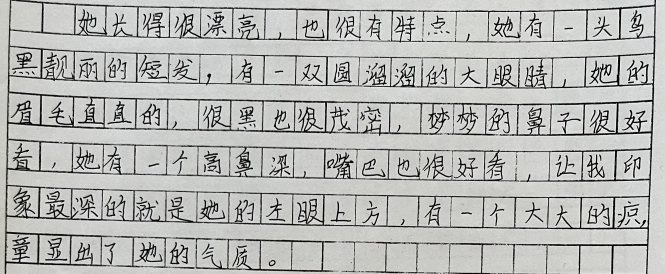 她长得很漂亮，也很有特点，她有一头乌
黑靓丽的短发，有一双圆溜溜的大眼睛，她的
眉毛直直的，很黑也很茂密，梦梦的鼻子很好
看，她有一个高鼻深，嘴巴也很好看，让我印
象最深的就是她的左眼上方，有一个大大的痣，
童显出了她的气质。